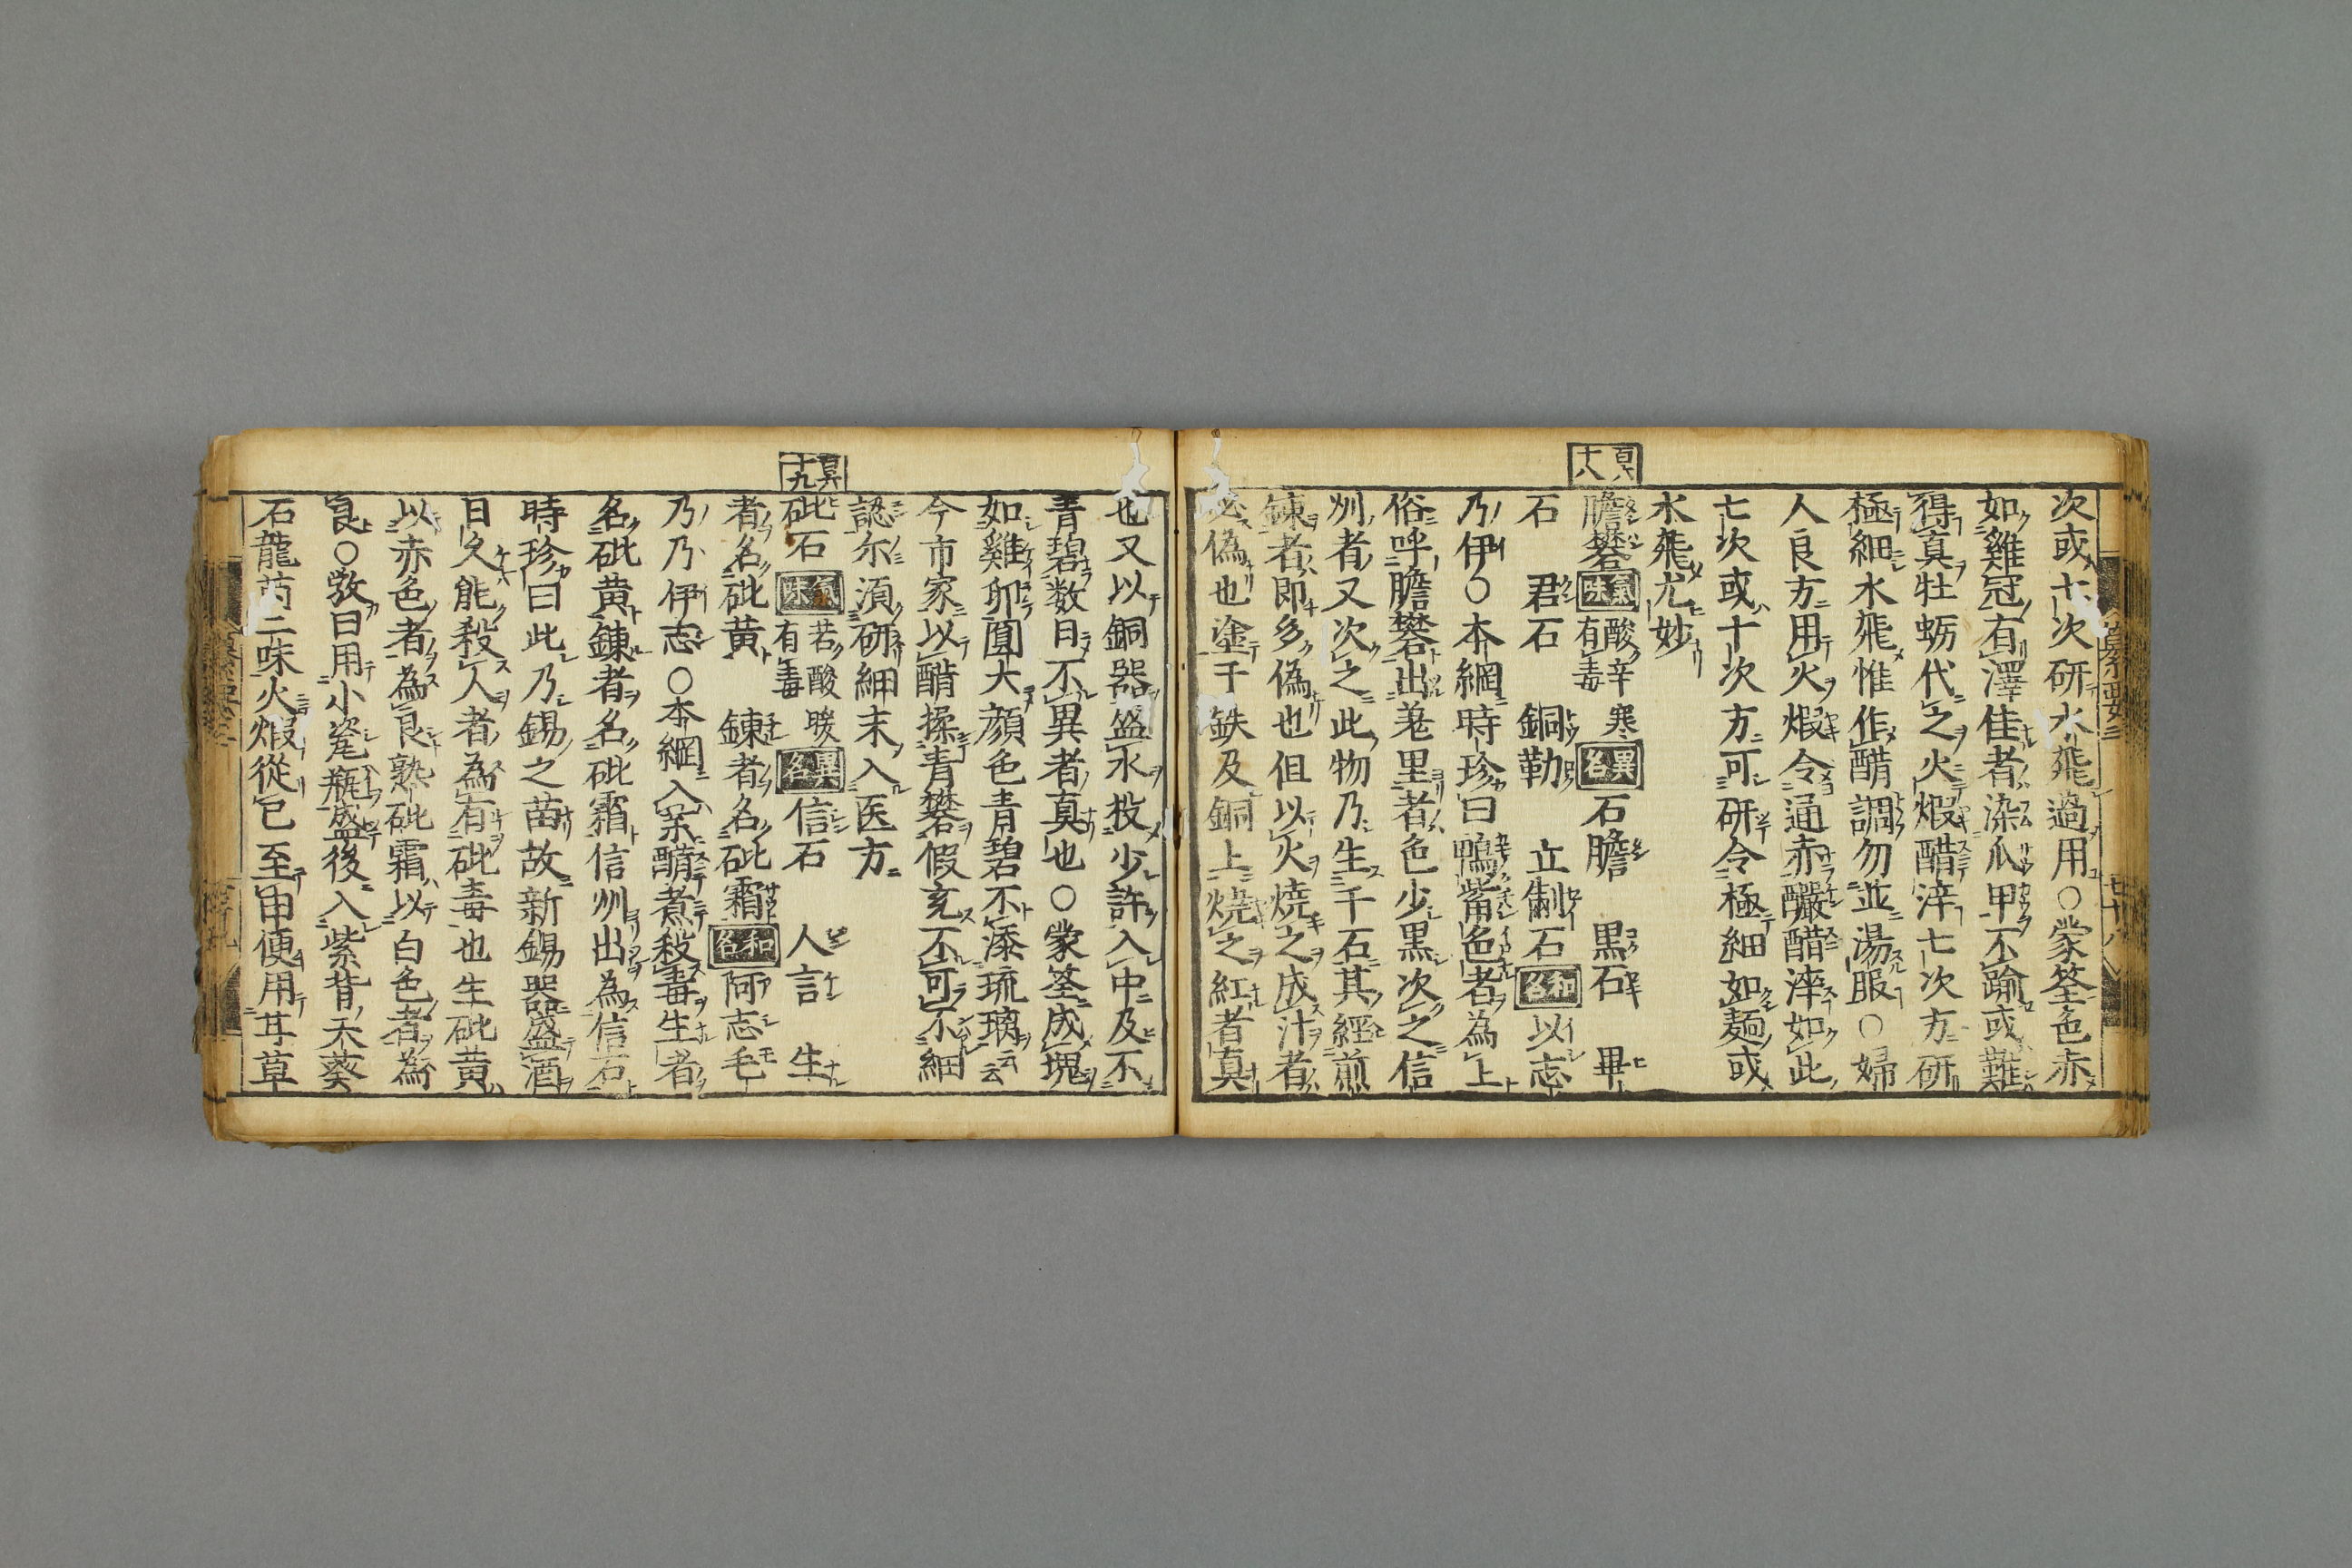 百六十八
次或十次研水飛過用○蒙筌色赤
如雞冠有澤佳者染爪甲不踰或難
得真牡蛎代之火煆醋淬七次方研
極細水飛惟作醋調勿並湯服○婦
人良方用火煆令通赤釅醋淬如此
七次或十次方可研令極細如麺或
水飛尤妙
膽礬 氣味 酸辛寒有毒 異名 石膽 黒石 畢
石 君石 銅勒 立制石 和名 以志
乃伊○本綱時珍曰鴨觜色者為上
俗呼膽礬出羗里者色少黒次之信
州者又次之此物乃生于石其經煎
錬者即多偽也但以火焼之成汁者
必偽也塗于鉄及銅上焼之紅者真
百六十九
也又以銅器盛水投少許入中及不
青碧数日不異者真也○蒙筌成塊
如雞卵圓大顔色青碧不忝琉璃云云
今市家以醋揉青礬假充不可不細
認尓須研細末入医方
砒石 氣味 苦酸暖有毒 異名 信石 人言 生
者名砒黄 錬者名砒霜 和名 阿志毛
乃乃伊志○本綱入薬醋煮殺毒生者
名砒黄錬者名砒霜信州出為信石
時珍曰此乃錫之苗故新錫器盛酒
日久能殺人者為有砒毒也生砒黄
以赤色者為良熟砒霜以白色者為
良○斆曰用小瓷瓶盛後入紫背天葵
石龍芮二味火煆從巳至申便用甘草